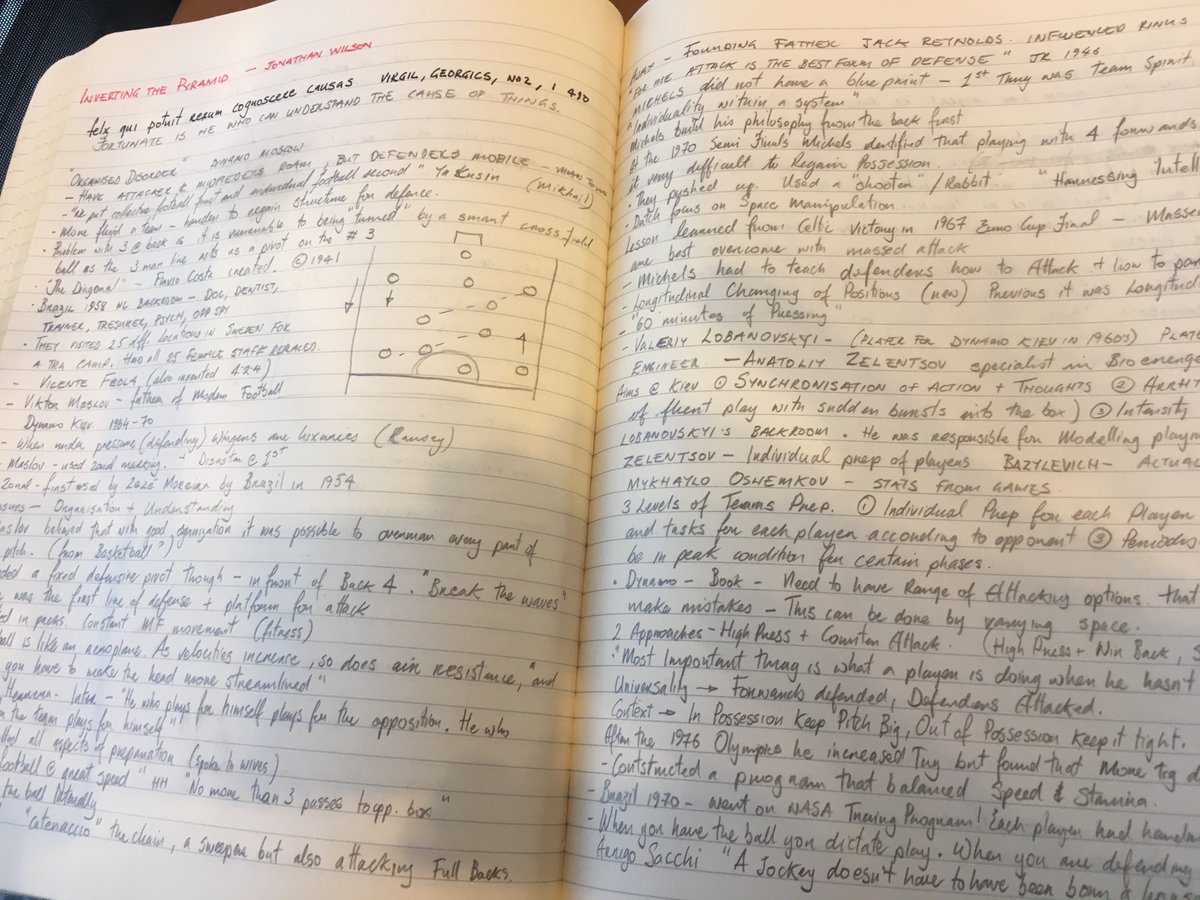 INVERTING THE PYRAMID — JONATHAN WILSON
felix qui potuit rerum cognoscere causas VIRGIL, GEORGICS, NO2, 1 490
FORTUNATE IS HE WHO CAN UNDERSTAND THE CAUSE OF THINGS.
"ORGANISED DISORDER" DYNAMO MOSCOW
- HAVE ATTACKERS & MIDFIELDERS ROAM, BUT DEFENDERS MOBILE -
- "We put collective football first and individual football second" Yakusin (Mikhail)
- More fluid a team - harder to regain structure for defence.
Problem with 3 @ back is it is vunerable to being "turned" by a smart crossfield
ball as the 3 man line acts as a pivot on the #3
· "The Diagonal" - Flavio Costa created. © 1941
· BRAZIL 1958 WC BACKROOM - DOC, DENTIST,
TRAINER, TRESURER, PSYCH, OPP SPY
· THEY VISITED 25 diff. locations in SWEDEN FOR
A TRA CAMP. HAD ALL 25 FEMALE STAFF REPLACED.
- VICENTE FEOLA (also invented 4.2.4)
- Viktor Maslov - father of Modern Football
Dynamo Kiev. 1964-70
- When under pressure (defending) wingers are luxuries (Ramsey)
- MASLOV - used zonal marking. Disaster @ 1st
Zonal - first used by Zeze Moreira by Brazil in 1954
Issues - Organisation + Understanding
Maslov believed that with good organization it was possible to overman every part of
pitch. (from Basketball")
a fixed defensive pivot though - in front of Back 4. "Break the waves"
was the first line of defense + platform for attack
in packs. Constant MF movement (fitness)
is like an aeroplane. As velocities increase, so does air resistance, "and
you have to make the head more streamlined"
Herrera - Inter - "He who plays for himself plays for the opposition. He who
the team plays for himself"
all aspects of preparation (spoke to wives)
football @ great speed" HH "No more than 3 passes to opp. box"
the ball laterally
"catenaccio" the chain, a sweeper but also attacking Full Backs.
- FOUNDING FATHER JACK REYNOLDS. INFLUENCED RINUS
"FOR ME ATTACK IS THE BEST FORM OF DEFENSE" JR 1946
MICHELS did not have a blueprint - 1st Thing was Team Spirit
"Individuality within a system"
Michels build his philosophy from the back first
At the 1970 Semi Finals Michels identified that playing with 4 forwards,
it very difficult to Regain Possession.
· They pushed up. Used a "shooter" / Rabbit. "Harnessing
· Dutch focus on Space Manipulation
Lesson learned from Celtic Victory in 1967 Euro Cup Final -
are best overcome with massed attack
- Michels had to teach defenders how to Attack + how to
- Longitudinal Changing of Positions (new) Previous it was
- "60 minutes of Pressing"
- VALERIY LOBANOVSKYI - (PLAYER FOR DYNAMO KIEV IN 1960'S)
ENGINEER - ANATOLIY ZELENTSOV specialist in
Aims @ KIEV ① SYNCHRONISATION OF ACTION + THOUGHTS ②
of fluent play with sudden bursts into the box) ③ Intensity
LOBANOVSKYI'S BACKROOM. He was responsible for Modelling
ZELENTSOV - Individual prep of players BAZYLEVICH -
MYKHAYLO OSHEMKOV - STATS FROM GAMES
3 Levels of Teams Prep. ① Individual Prep for each Player
and tasks for each player according to opponent ③
be in peak condition for certain phases.
· Dynamo - Book - Need to have Range of Attacking options. that
make mistakes - This can be done by varying space.
2 Approaches - High Press + Counter Attack. (High Press + Win Back,
"Most Important thing is what a player is doing when he hasn't
Universality → Forwards defended, Defenders Attacked.
Context → In Possession Keep Pitch Big, Out of Possession keep it tight.
After the 1976 Olympics he increased Trng but found that More trg
- Contstructed a program that balanced Speed & Stamina.
- Brazil 1970 - went on NASA Training Program! Each player had
- When you have the ball you dictate play. When you are defending
Arrigo Sacchi "A Jockey doesn't have to have been born a